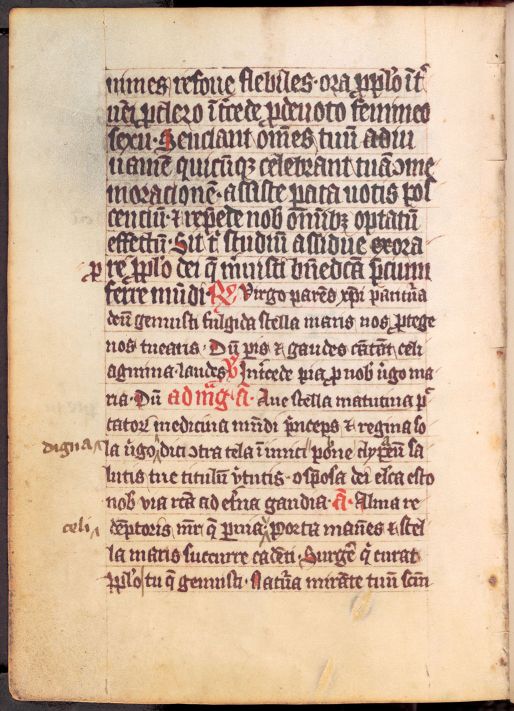 nimes refoue flebiles · ora p̱ pp̱lo ĩt̾
ueĩ p̱ clero ĩt̾cede p̱ deuoto femineo
sexu · Senciant om̃es tuũ adiu
uamẽ quicũq; celebrant tuã ↄme
moracionẽ · assiste parata uotis pos
cenciũ · ⁊ rep̱ẽde nob̾ om̃ib; optatũ
effectũ · Sit t̾ studiũ assidue exora
p̱ re p̱ pp̱lo dei q̃ m̃uisti bñedc̃a p̾cium
ferre mũdi · R̷ Virgo parẽs xp̃i paritũa
deũ genuisti fulgida stella maris nos p̱tege
nos tuearis · Dũ p̾is ⁊ gaudes cãtãt celi
agmina laudes V̷ Int̾cede pia p̱ nob̾ ũgo ma
ria · Dũ ad mg̃ · a̅ · Aue stella matutina p̾c
tatoꝝ medicina mũdi p̾nceps ⁊ regina so
digna la ũgo dici ↄtra tela ĩimici pone clypeũ sa
lutis tue titulũ ṽtutis · o sp̃osa dei elc̃a esto
nob̾ uia rc̃a ad et̾na gaudia · a̅ · Alma re
celi dẽptoris mr̃ q̃ p̱uia porta manes ⁊ stel
la maris succurre cadẽti · Surgẽ q̃ curat
pp̱lo tu q̃ genuisti · Natũa mirãte tuũ sc̃m